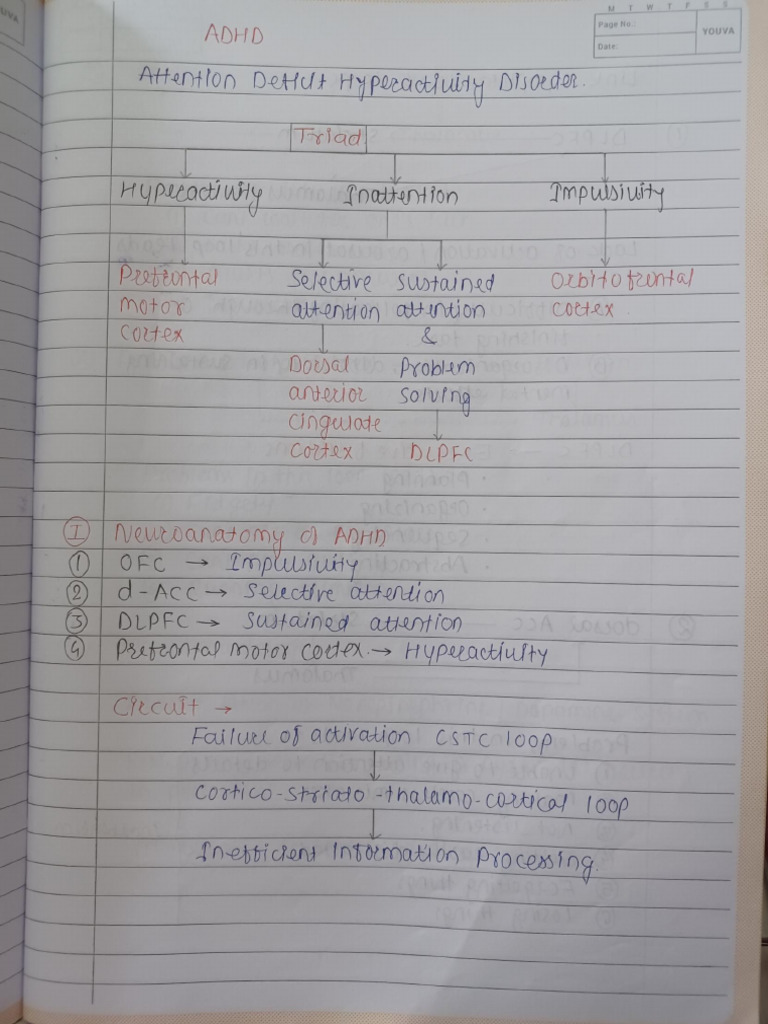 M T W T F S S
Page No.:
YOUVA
Date:
ADHD
Attention Deficit Hyperactivity Disorder.
Triad
Hyperactivity Inattention Impulsivity
Prefrontal Selective sustained Orbitofrontal
motor attention attention cortex
cortex &
Dorsal Problem
anterior solving
cingulate
cortex DLPFC
I Neuroanatomy of ADHD
1 OFC → Impulsivity
2 d-ACC → Selective attention
3 DLPFC → Sustained attention
4 Prefrontal motor cortex. → Hyperactivity
Circuit →
Failure of activation CSTC loop
Cortico-striato-thalamo-cortical loop
Inefficient Information Processing.